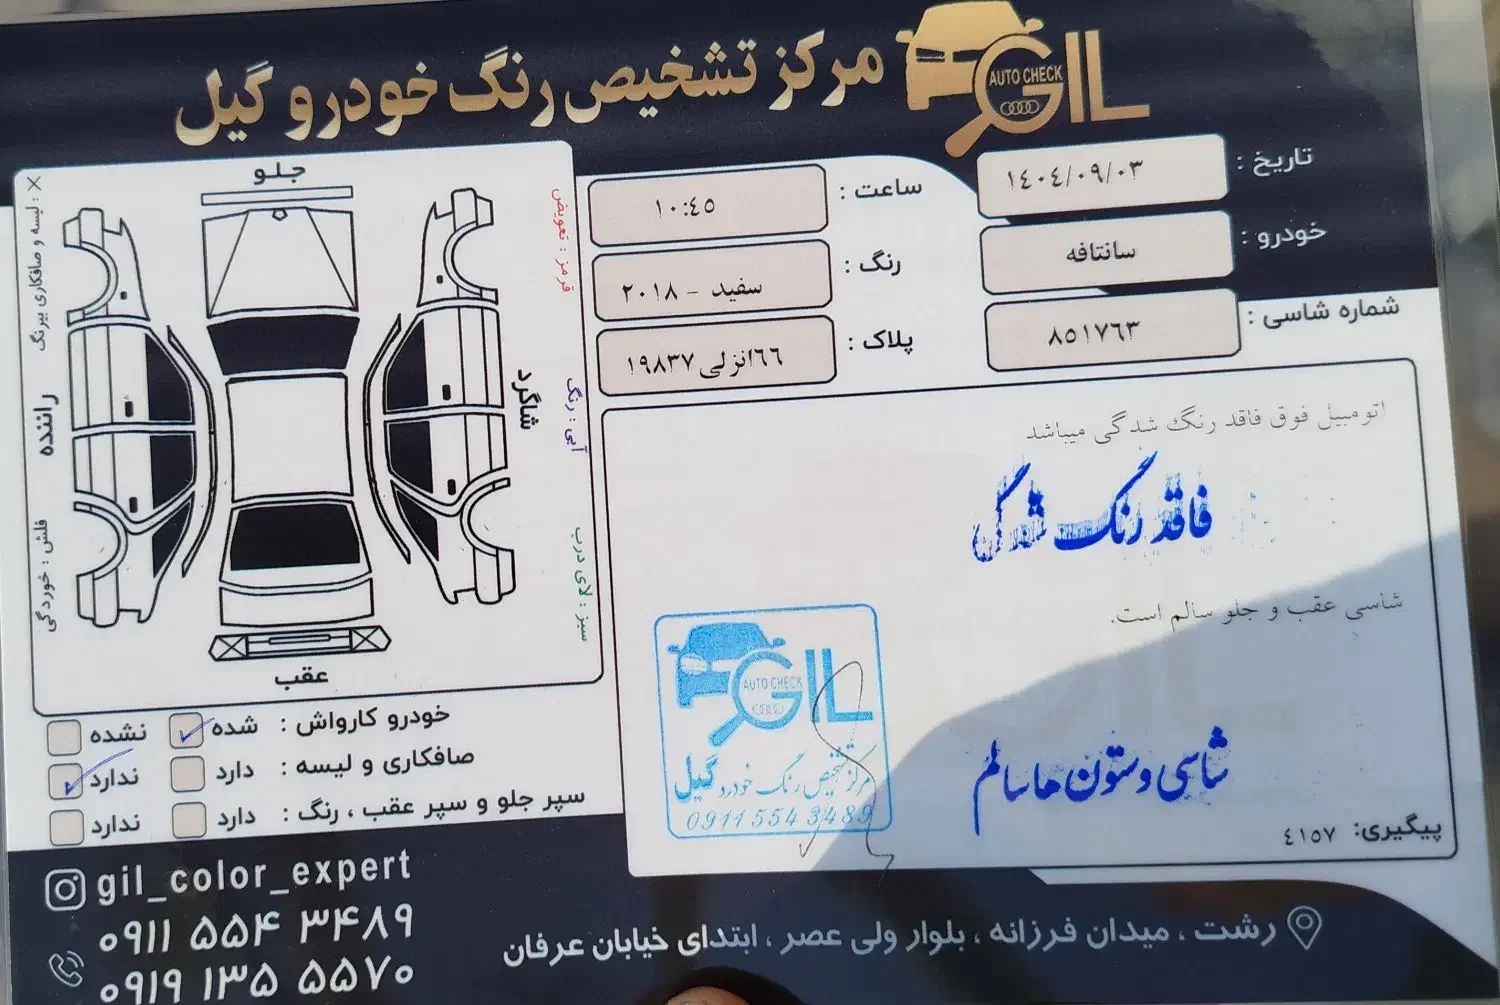 مرکز تشخیص رنگ خودرو گیل
GIL
AUTO CHECK
تاریخ : ١٤٠٤/٠٩/٠٣
ساعت : ١٠:٤٥
خودرو : سانتافه
رنگ : سفید - ٢٠١٨
شماره شاسی : ٨٥١٧٦٣
پلاک : ٦٦انزلی ١٩٨٣٧
جلو
× : لیسه و صافکاری بیرنگ
راننده
فلش : خوردگی
شاگرد
قرمز : تعویض
آبی : رنگ
سبز : لای درب
عقب
اتومبیل فوق فاقد رنگ شدگی میباشد
فاقد رنگ شدگی
شاسی عقب و جلو سالم است.
شاسی و ستون ها سالم
GIL
AUTO CHECK
مرکز تشخیص رنگ خودرو گیل
0911 554 3489
پیگیری: ٤١٥٧
خودرو کارواش : شده ✓ نشده
صافکاری و لیسه : دارد ندارد ✓
سپر جلو و سپر عقب ، رنگ : دارد ندارد
gil_color_expert
۰۹۱۱ ۵۵۴ ۳۴۸۹
۰۹۱۹ ۱۳۵ ۵۵۷۰
رشت ، میدان فرزانه ، بلوار ولی عصر ، ابتدای خیابان عرفان